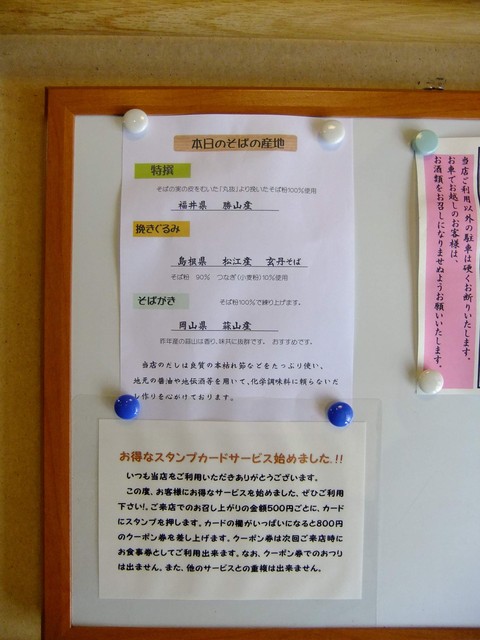 本日のそばの産地
特撰
そばの実の皮をむいた「丸抜」より挽いたそば粉100%使用
福井県 勝山産
挽きぐるみ
島根県 松江産 玄丹そば
そば粉 90% つなぎ(小麦粉)10%使用
そばがき そば粉100%で練り上げます。
岡山県 蒜山産
昨年産の蒜山は香り、味共に抜群です。 おすすめです。
当店のだしは良質の本枯れ節などをたっぷり使い、
地元の醤油や地伝酒等を用いて、化学調味料に頼らないだ
し作りを心がけております。
お得なスタンプカードサービス始めました.!!
いつも当店をご利用いただきありがとうございます。
この度、お客様にお得なサービスを始めました、ぜひご利用
下さい!、ご来店でのお召し上がりの金額500円ごとに、カード
にスタンプを押します。カードの欄がいっぱいになると800円
のクーポン券を差し上げます。クーポン券は次回ご来店時に
お食事券としてご利用出来ます。なお、クーポン券でのおつり
は出ません。また、他のサービスとの重複は出来ません。
当店ご利用以外の駐車は硬くお断りいたします。
お車でお越しのお客様は、
お酒類をお召しになりませぬようお願いいたします。